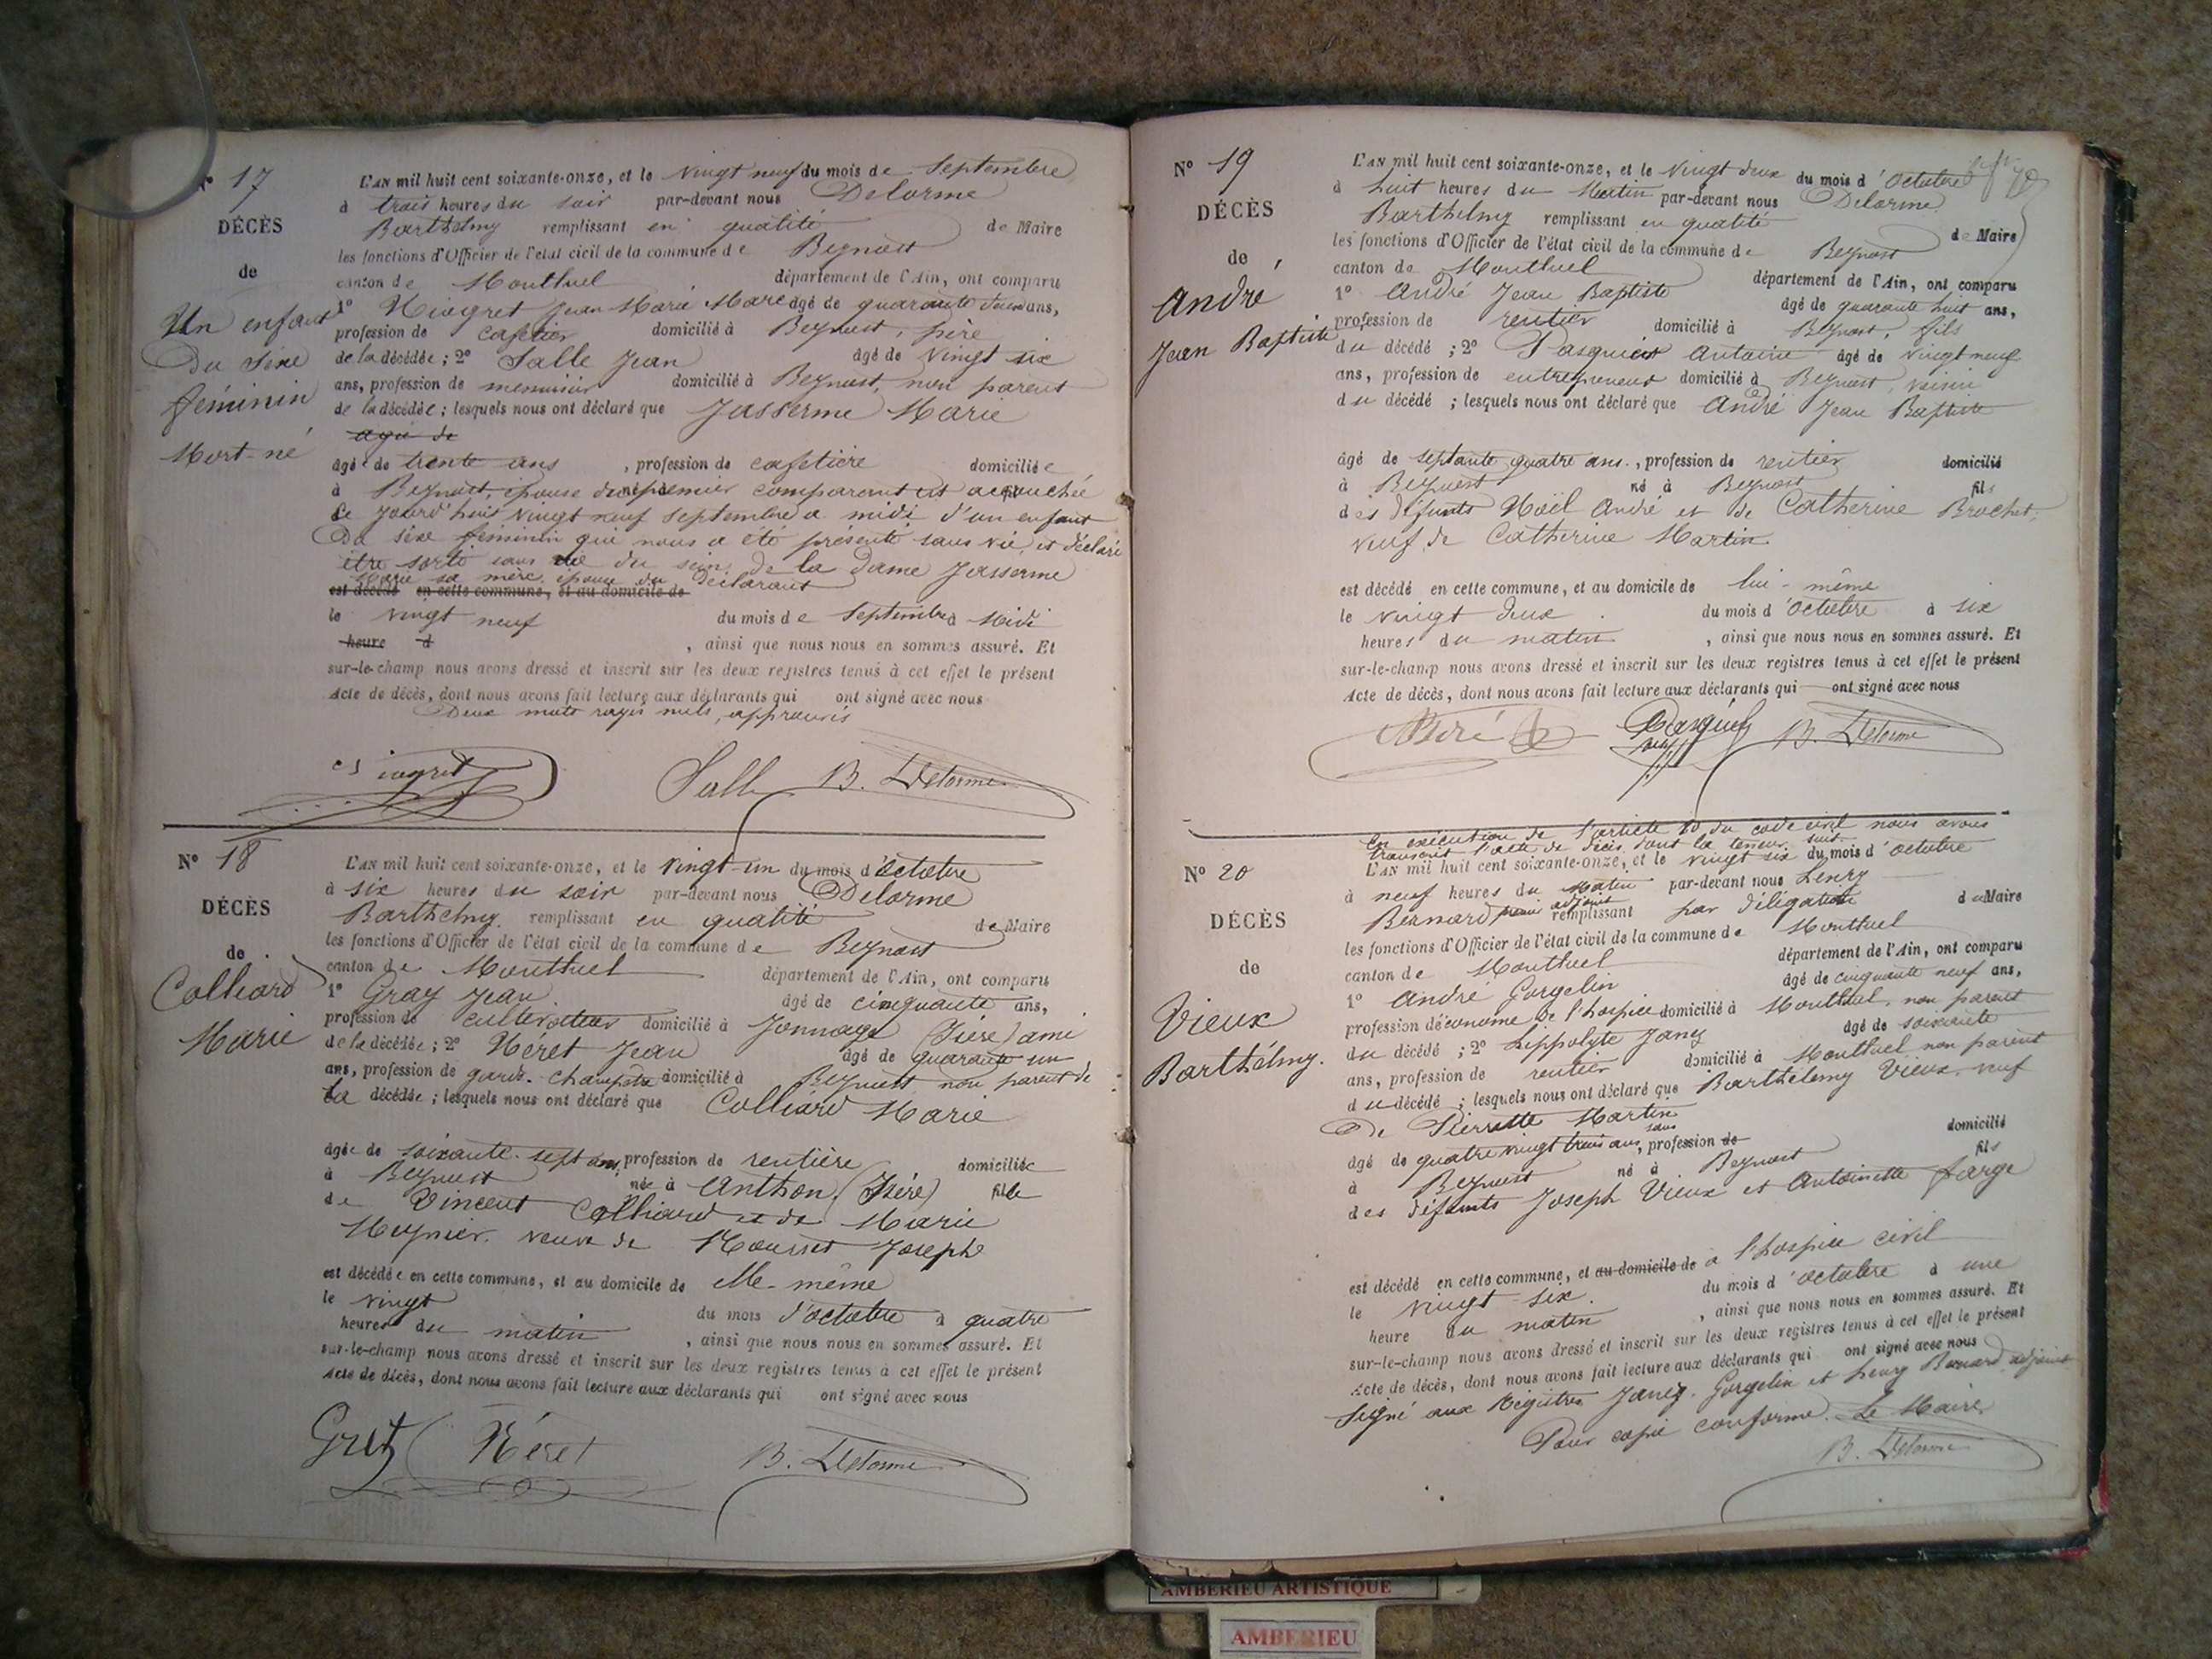 N° 17
DÉCÈS
de
Un enfant
Du Sexe
féminin
Mort-né
L'AN mil huit cent soixante-onze, et le vingt neuf du mois de Septembre
à trois heures du soir par-devant nous Delorme
Barthelmy remplissant en qualité de Maire
les fonctions d'Officier de l'état civil de la commune de Beynost
canton de Montluel département de l'Ain, ont comparu
1° Jean Marie Marc âgé de quarante deux ans,
profession de cafetier domicilié à Beynost, père
de la décédée ; 2° Salle Jean âgé de vingt six
ans, profession de menuisier domicilié à Beynost, non parent
de la décédée ; lesquels nous ont déclaré que Jasserme Marie
agée de
âgée de trente ans , profession de cafetière domiciliée
à Beynost, épouse du premier comparant est accouchée
ce jourd'hui vingt neuf Septembre a midi d'un enfant
Du sexe féminin qui nous a été présenté sans vie, et déclaré
être sorti sans vie du sein de la Dame Jasserme
Marie sa mère, épouse du déclarant
est décédé en cette commune, et au domicile de
le vingt neuf du mois de Septembre à Midi
heure d , ainsi que nous nous en sommes assuré. Et
sur-le-champ nous avons dressé et inscrit sur les deux registres tenus à cet effet le présent
Acte de décès, dont nous avons fait lecture aux déclarants qui ont signé avec nous
Deux mots rayés nuls, approuvés
Salle B. Delorme
N° 18
DÉCÈS
de
Colliard
Marie
L'AN mil huit cent soixante-onze, et le vingt-un du mois d'Octobre
à six heures du soir par-devant nous Delorme
Barthelmy remplissant en qualité de Maire
les fonctions d'Officier de l'état civil de la commune de Beynost
canton de Montluel département de l'Ain, ont comparu
1° Gray Jean âgé de cinquante ans,
profession de cultivateur domicilié à Jonnage (Isère) ami
de la décédée ; 2° Néret Jean âgé de quarante un
ans, profession de garde-champêtre domicilié à Beynost non parent de
la décédée ; lesquels nous ont déclaré que Colliard Marie
âgée de soixante-sept ans, profession de rentière domiciliée
à Beynost née à Anthon (Isère) fille
de Vincent Colliard et de Marie
Meynier veuve de Mousset Joseph
est décédée en cette commune, et au domicile de elle-même
le vingt du mois d'octobre à quatre
heures du matin , ainsi que nous nous en sommes assuré. Et
sur-le-champ nous avons dressé et inscrit sur les deux registres tenus à cet effet le présent
Acte de décès, dont nous avons fait lecture aux déclarants qui ont signé avec nous
Néret B. Delorme
N° 19
DÉCÈS
de
André
Jean Baptiste
L'AN mil huit cent soixante-onze, et le vingt deux du mois d'octobre
à huit heures du Matin par-devant nous Delorme
Barthelmy remplissant en qualité de Maire
les fonctions d'Officier de l'état civil de la commune de Beynost
canton de Montluel département de l'Ain, ont comparu
1° André Jean Baptiste âgé de quarante huit ans,
profession de rentier domicilié à Beynost, fils
du décédé ; 2° Pasquier Antoine âgé de vingt neuf
ans, profession de entrepreneur domicilié à Beynost, voisin
du décédé ; lesquels nous ont déclaré que André Jean Baptiste
âgé de septante quatre ans , profession de rentier domicilié
à Beynost né à Beynost fils
des défunts Noël André et de Catherine Brochet,
veuf de Catherine Martin
est décédé en cette commune, et au domicile de lui-même
le vingt deux du mois d'octobre à six
heures du matin , ainsi que nous nous en sommes assuré. Et
sur-le-champ nous avons dressé et inscrit sur les deux registres tenus à cet effet le présent
Acte de décès, dont nous avons fait lecture aux déclarants qui ont signé avec nous
André B. Delorme
N° 20
DÉCÈS
de
Vieux
Barthélmy.
En exécution de l'article 80 du code civil nous avons
transcrit l'acte de décès dont la teneur suit
L'AN mil huit cent soixante-onze, et le vingt six du mois d'octobre
à neuf heures du Matin par-devant nous henry
Bernard adjoint remplissant par délégation du Maire
les fonctions d'Officier de l'état civil de la commune de Montluel
canton de Montluel département de l'Ain, ont comparu
1° André Gorgelin âgé de cinquante neuf ans,
profession d'économe de l'hospice domicilié à Montluel, non parent
du décédé ; 2° hippolyte Janez âgé de soixante
ans, profession de rentier domicilié à Montluel non parent
du décédé ; lesquels nous ont déclaré que Barthélemy Vieux, veuf
De Pierrette Martin
âgé de quatre vingt trois ans, sans profession de domicilié
à Beynost né à Beynost fils
des défunts Joseph Vieux et Antoinette farge
est décédé en cette commune, et au domicile de à l'hospice civil
le vingt-six du mois d'octobre à une
heure du matin , ainsi que nous nous en sommes assuré. Et
sur-le-champ nous avons dressé et inscrit sur les deux registres tenus à cet effet le présent
Acte de décès, dont nous avons fait lecture aux déclarants qui ont signé avec nous
Signé aux Régistres Janez, Gorgelin et henry Bernard adjoint
Pour copie conforme. Le Maire,
B. Delorme
AMBERIEU ARTISTIQUE
AMBERIEU